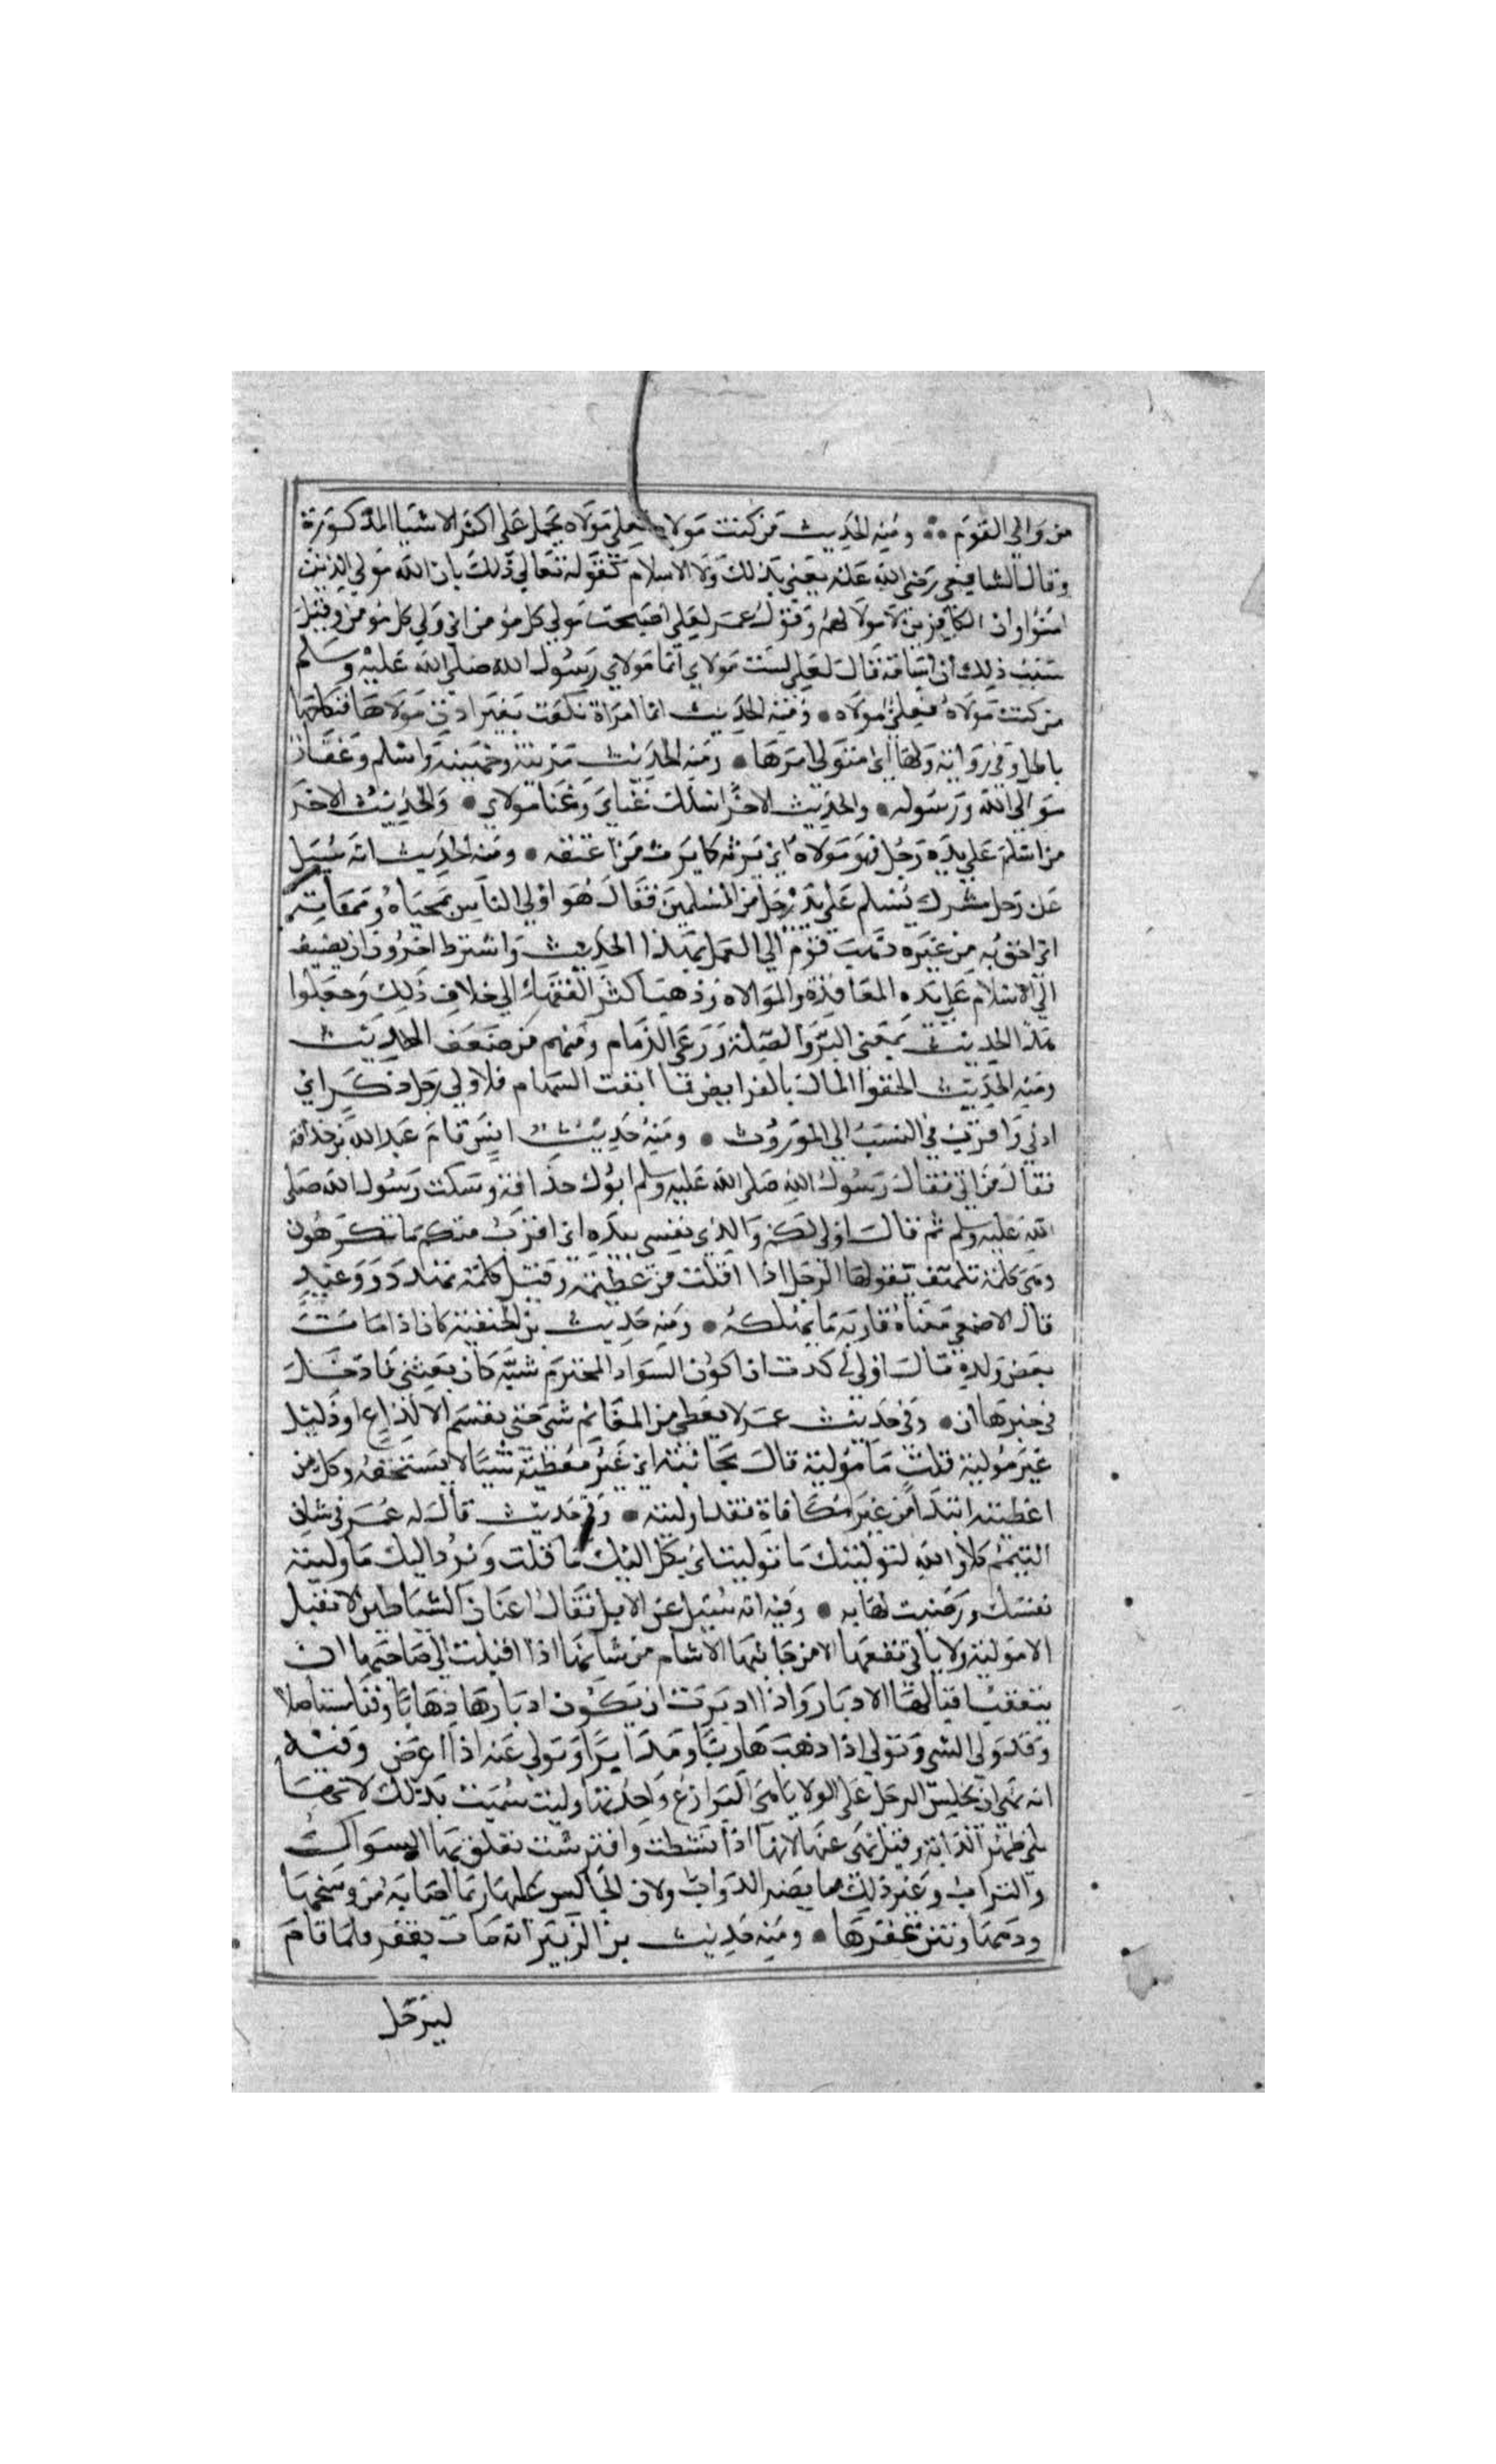 من والي القوم ومنه الحديث من كنت مولاه فعلي مولاه يحمل على اكثر الاشيا المذكورة
وقال الشافعي رضي الله عنه يعني بذلك ولا الاسلام كقوله تعالي ذلك بان الله مولي الذين
امنوا وان الكافرين لا مولا لهم وقول عمر لعلي اصبحت مولي كل مومن اي ولي كل مومن وقيل
سبب ذلك ان اسامة قال لعلي لست مولاي انما مولاي رسول الله صلى الله عليه وسلم
من كنت مولاه فعلي مولاه ومنه الحديث ايما امراة نكحت بغير اذن مولاها فنكاحها
باطل وفي رواية وليها اي متولي امرها ومنه الحديث مزينة وجهينة واسلم وغفار
موالي الله ورسوله والحديث الاخر اسلك غناي وغنا مولاي والحديث الاخر
من اسلم على يده رجل فهو مولاه اي يرثه كما يرث من اعتقه ومنه الحديث انه سيل
عن رجل مشرك يسلم على يد رجل من المسلمين فقال هو اولي الناس بمحياه ومماته
اي احق به من غيره ذهب قوم الي العمل بهذا الحديث واشترط اخرون ان يضيف
الي الاسلام على يده المعاقدة والموالاة وذهب اكثر الفقهاء الي خلاف ذلك وجعلوا
هذا الحديث بمعني البر والصلة ورعي الذمام ومنهم من ضعف الحديث
ومنه الحديث الحقوا المال بالفرايض فما ابقت السهام فلاولي رجل ذكر اي
ادني واقرب في النسب الي الموروث ومنه حديث انس قام عبد الله بن حذافة
فقال من ابي فقال رسول الله صلى الله عليه وسلم ابوك حذافة وسكت رسول الله صلى
الله عليه وسلم ثم قال اولي لكم والذي نفسي بيده اي اقرب منكم ما تكرهون
وهي كلمة تلهف يقولها الرجل اذا افلت من عظيمة وقيل كلمة تهدد ووعيد
قال الاصمعي معناه قاربه ما يهلكه ومنه حديث بن الحنفية كان اذا مات
بعض ولده قال اولي لي كدت ان اكون السواد المخترم شبه كان بعسي فادخل
في خبرها ان وفي حديث عمر لا يعطي من المغانم شي حتي تقسم الا لراع او دليل
غير موليه قلت ما موليه قال محابيه اي غير معطيه شييا لا يستحقه وكل من
اعطيته ابتدا من غير مكافاة فقد اوليته وفي حديث قال له عمر في شان
التيمم كلا والله لنولينك ما توليت اي نكل اليك ما قلت ونرد اليك ما وليته
نفسك ورضيت لها به وفيه انه سيل عن الابل فقال اعنان الشياطين لا تقبل
الا مولية ولا ياتي نفعها الا من جانبها الاشام من شانها اذا اقبلت الي صاحبها ان
يتعقب اقبالها الادبار واذا ادبرت ان يكون ادبارها ذهابا وفنا مستاصلا
وقد ولي الشي وتولي اذا ذهب هاربا ومدبرا وتولي عنه اذا اعرض وفيه
انه نهي ان يجلس الرجل على الولايا هي البراذع واحدتها ولية سميت بذلك لانها
تلي ظهر الدابة وقيل نهي عنها لانها اذا بسطت وافترشت تعلق بها الشوك
والتراب وغير ذلك مما يضر الدواب ولان الجالس عليها ربما اصابه من وسخها
ودمها ونتن عقرها ومنه حديث بن الزبير انه بات بقفر فلما قام
ليرحل